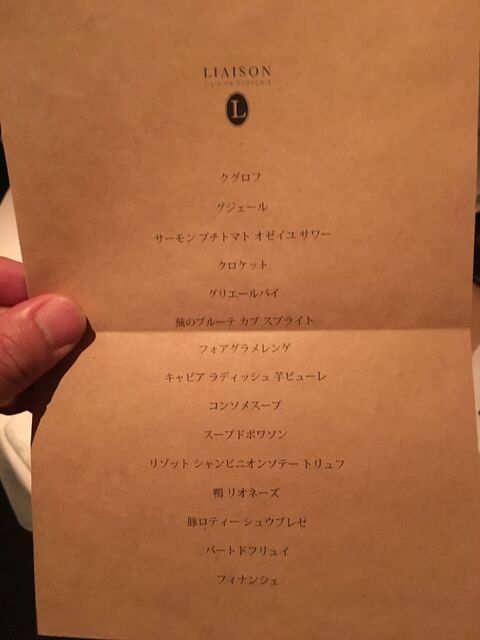 LIAISON
Cuisine Français
L
クグロフ
グジェール
サーモン プチトマト オゼイユ サワー
クロケット
グリエールパイ
蕪のブルーテ カブ スプライト
フォアグラメレンゲ
キャビア ラディッシュ 芋ピューレ
コンソメスープ
スープドポワソン
リゾット シャンピニオンソテー トリュフ
鴨 リオネーズ
豚ロティー シュウブレゼ
パートドフリュイ
フィナンシェ